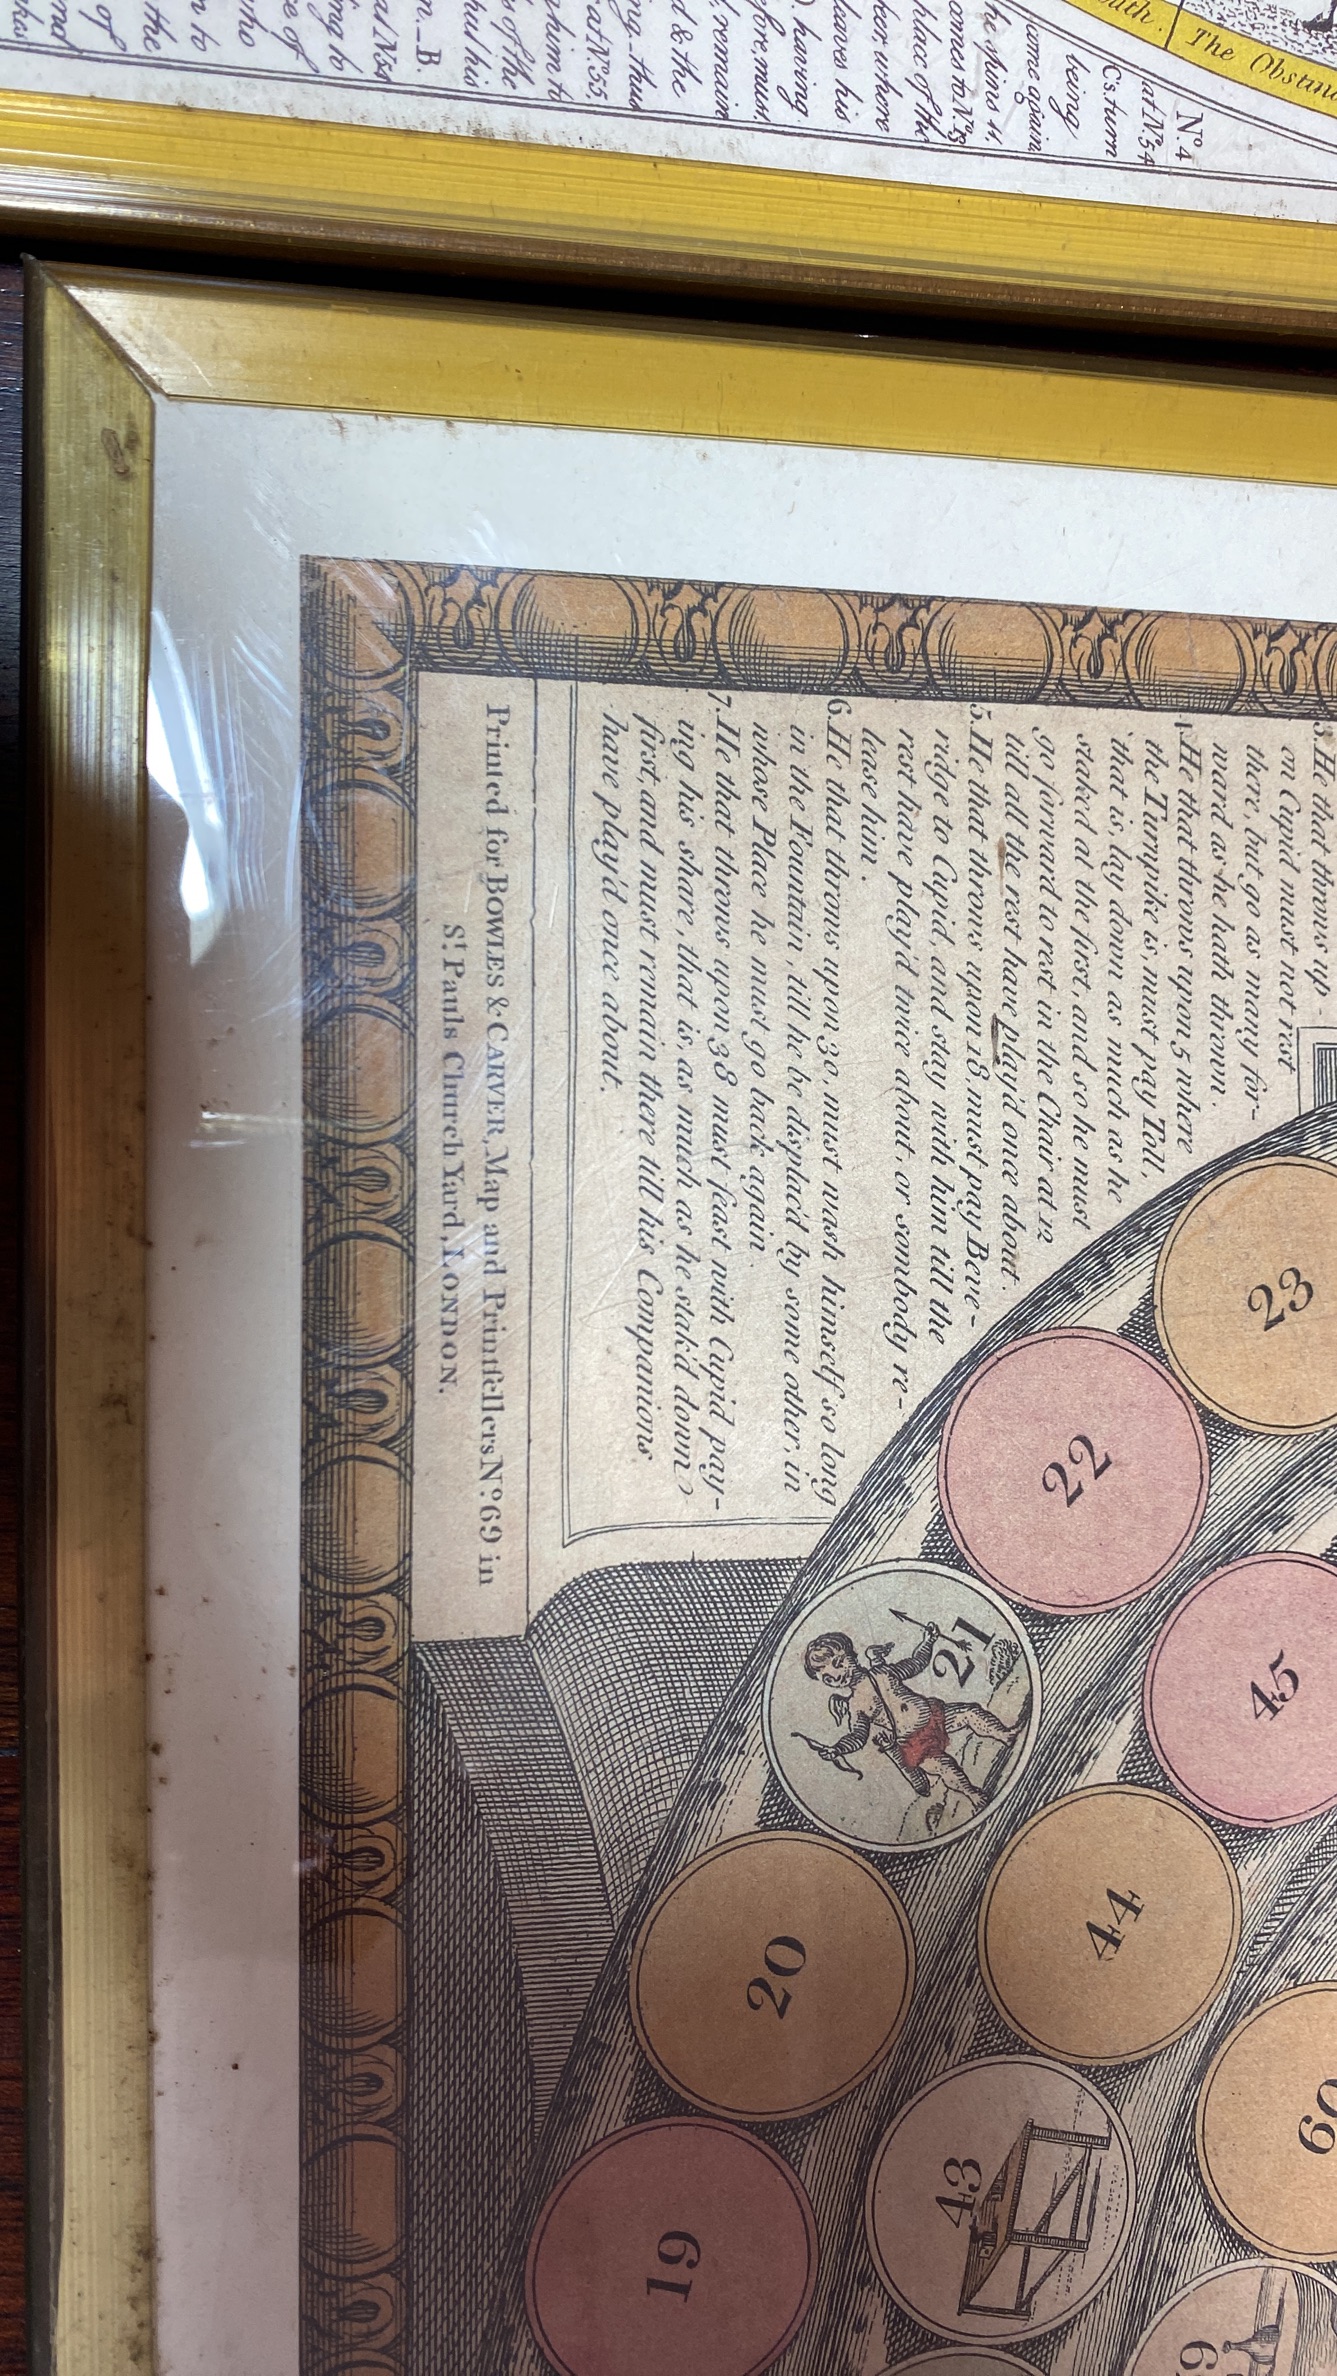 3. He that throws up-
on Cupid must not rest
there, but go as many for-
ward as he hath thrown.
4. He that throws upon 5 where
the Turnpike is, must pay Toll,
that is, lay down as much as he
staked at the first, and so he must
go forward to rest in the Chair at 12
till all the rest have play'd once about.
5. He that throws upon 18, must pay Beve-
ridge to Cupid, and stay with him till the
rest have play'd twice about, or sombody re-
lease him.
6. He that throws upon 30, must wash himself so long
in the Fountain, till he be displac'd by some other, in
whose Place he must go back again
7. He that throws upon 38 must feast with Cupid pay-
ing his share, that is, as much as he stak'd down
first, and must remain there till his Companions
have play'd once about.
Printed for BOWLES & CARVER, Map and Printsellers No. 69 in
St. Pauls Church Yard, LONDON.
23
22
45
21
44
20
60
43
19
9
The Obstin
No 4
at No. 54
C's turn
being
come again
he spins 4,
comes to No. 58
place of the
ker where
leaves his
having
fore, must,
remain
d & the
ng - thus
at No. 55,
him to
of the
his
n. - B.
No. 54
to
of
who
to
the
of